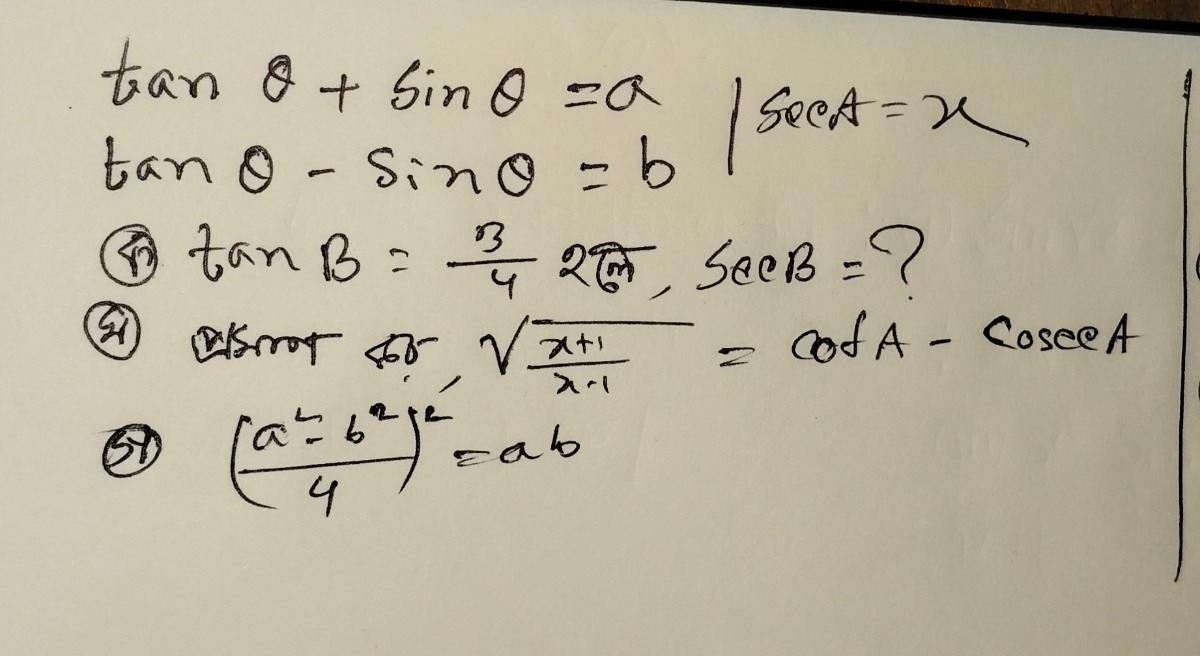 tan θ + sin θ = a | secA = x
tan θ - sin θ = b
(ক) tan B = 3/4 হলে, secB = ?
(খ) প্রমাণ কর, √((x+1)/(x-1)) = cotA - cosecA
(গ) ((a² - b²)/4)² = ab